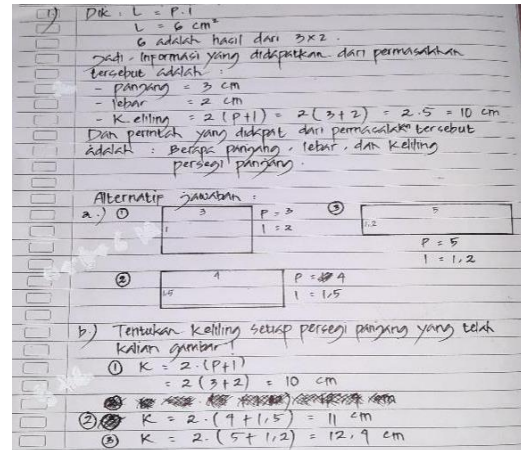 1) Dik : L = P.l
L = 6 cm²
6 adalah hasil dari 3×2.
Jadi, informasi yang didapatkan dari permasalahan
tersebut adalah :
- panjang = 3 cm
- lebar = 2 cm
- K. eliling = 2 (P+l) = 2 (3+2) = 2.5 = 10 cm
Dan perintah yang didapat dari permasalahan tersebut
adalah : Berapa panjang, lebar, dan keliling
persegi panjang.
Alternatif jawaban :
a.) ① 3 P = 3
l = 2
③ 5
1,2
P = 5
l = 1,2
② 4 P = 4
1,5 l = 1,5
b.) Tentukan keliling setiap persegi panjang yang telah
kalian gambar !
① K = 2.(P+l)
= 2 (3+2) = 10 cm
② K = 2.(4+1,5) = 11 cm
③ K = 2.(5+1,2) = 12,4 cm